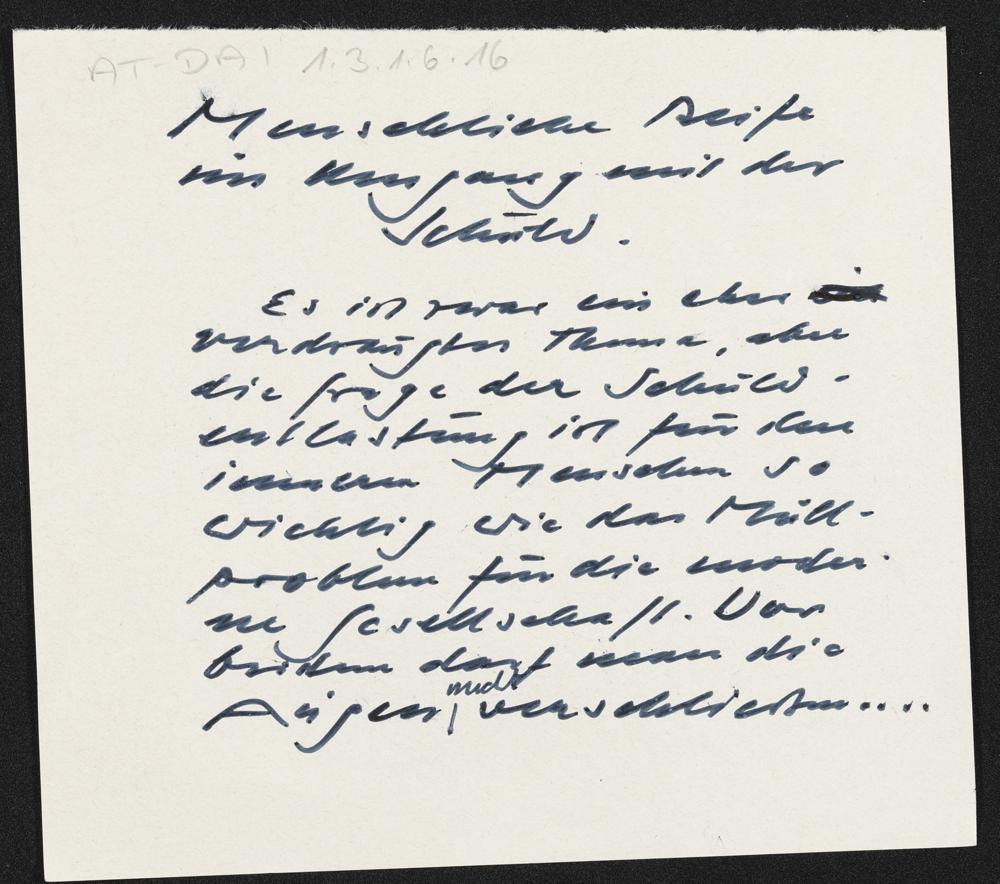 AT-DAI 1.3.1.6.16
Menschliche Reife
im Umgang mit der
Schuld.
Es ist zwar ein eher
verdrängtes Thema, aber
die Frage der Schuld-
entlastung ist für den
inneren Menschen so
wichtig wie das Müll-
problem für die moder-
ne Gesellschaft. Vor
beidem darf man die
nicht
Augen verschließen....